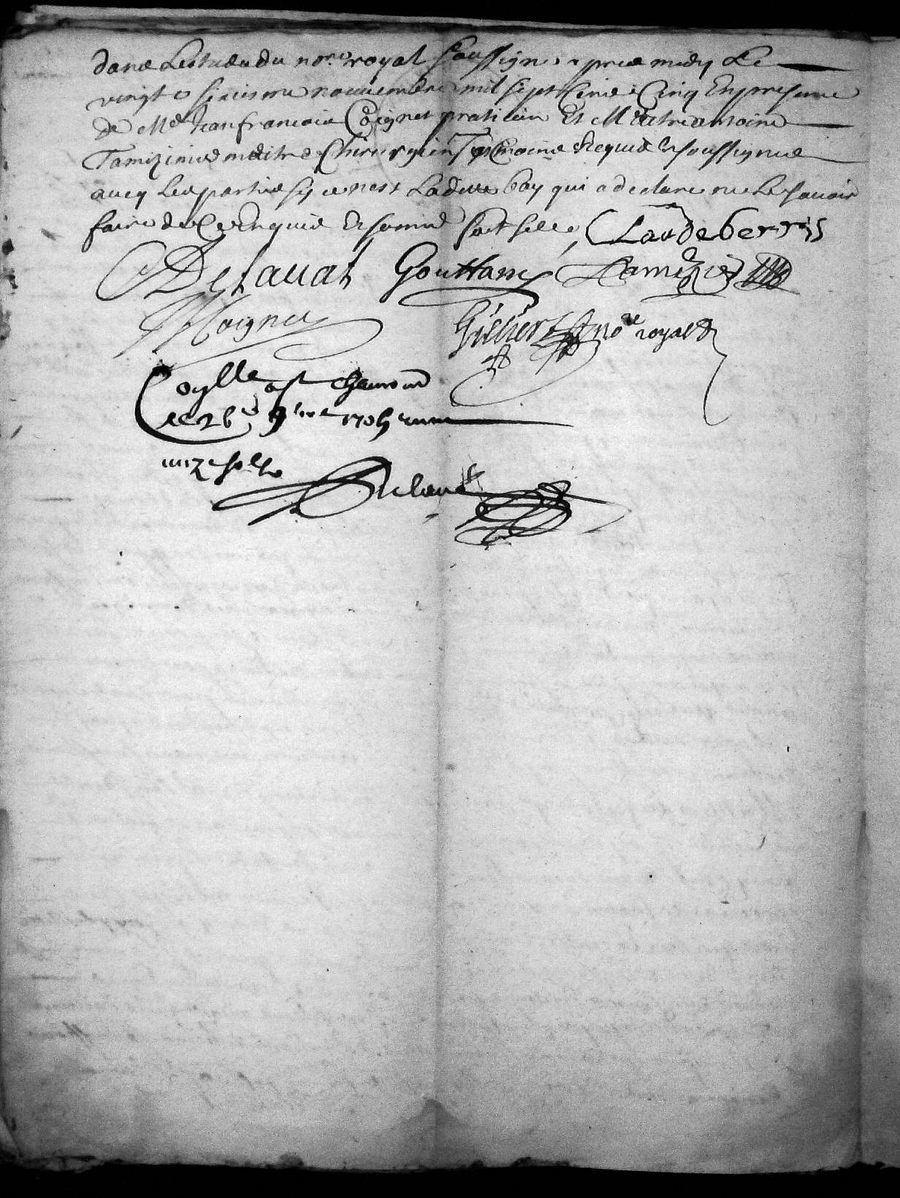 dans lestude du no.re royal soussigne apres midy le
vingt et sixiesme nouembre mil sept cens Cinq En presence
de M.e Jean francois Coignet pratitien Et M.e antoine
Tamizier maitre Chirurgien Tesmoins Requis et soussignes
aucq les parties si ce nest ladite bay qui a declare ne le scavoir
faire de ce Enquis et somme soit selle, Claudeberr
Delaual Gouttard Tamizier
Coignet Gillier no.re royal
Colle a st chamond
le 26.e 9bre 1705 Receu
unze sols